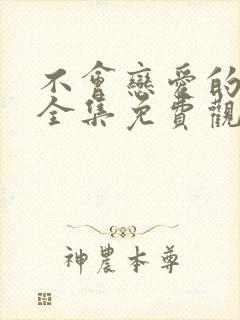 不會戀愛的
全集免費觀
神農本尊